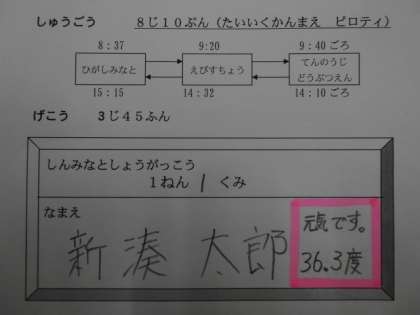 しゅうごう　８じ１０ぶん（たいいくかんまえ　ピロティ）
8：37　9:20　9：40 ごろ
ひがしみなと　えびすちょう　てんのうじ
どうぶつえん
15：15　14：32　14：10 ごろ
げこう　３じ４５ふん
しんみなとしょうがっこう
１ねん　1　くみ
なまえ
新湊 太郎
元気です。
36.3度